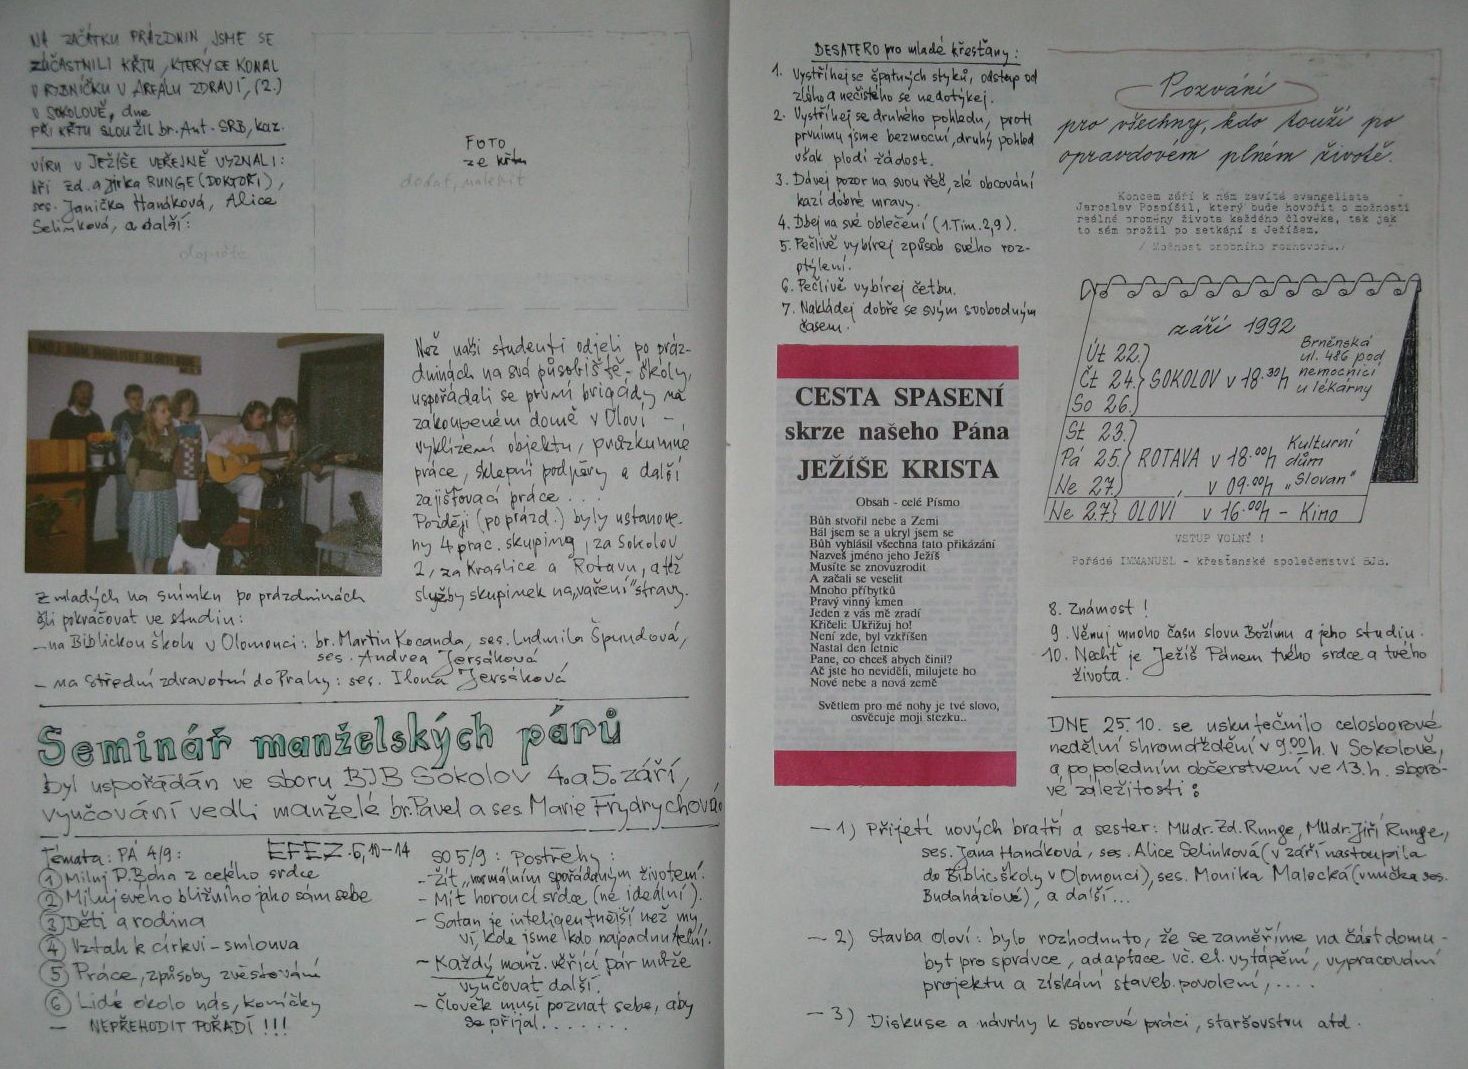 NA ZAČÁTKU PRÁZDNIN, JSME SE
ZÚČASTNILI KŘTU, KTERÝ SE KONAL
V RYBNÍČKU V AREÁLU ZDRAVÍ, (2.)
V SOKOLOVĚ, dne
PŘI KŘTU SLOUŽIL br. Ant. SRB, kaz.
VÍRU V JEŽÍŠE VEŘEJNĚ VYZNALI:
bří Zd. a Jirka RUNGE (DOKTOŘI),
ses. Janička Hanáková, Alice
Selinková, a další:
doplníte
FOTO
ze křtu
dodat, nalepit
Než naši studenti odjeli po práz-
dninách na svá působiště - školy,
uspořádali se první brigády na
zakoupeném domě v Oloví -
vyklízení objektu, průzkumné
práce, sklepní podpěry a další
zajišťovací práce...
Později (po prázd.) byly ustanove-
ny 4 prac. skupiny, za Sokolov
2, za Kraslice a Rotavu, a též
služby skupinek na „vaření" stravy.
z mladých na snímku po prázdninách
šli pokračovat ve studiu:
- na Biblickou školu v Olomouci: br. Martin Kocanda, ses. Ludmila Špundová,
ses. Andrea Jersáková,
- na Střední zdravotní do Prahy: ses. Ilona Jersáková
Seminář manželských párů
byl uspořádán ve sboru BJB Sokolov 4. a 5. září,
vyučování vedli manželé br. Pavel a ses. Marie Frydrychová.
Témata: PÁ 4/9: EFEZ. 6, 10-14
① Miluj P. Boha z celého srdce
② Miluj svého bližního jako sám sebe
③ Děti a rodina
④ Vztah k církvi - smlouva
⑤ Práce, způsoby zvěstování
⑥ Lidé okolo nás, koníčky
- NEPŘEHODIT POŘADÍ !!!
SO 5/9: Postřehy:
- Žít „normálním spořádaným životem.
- Mít horoucí srdce (ne ideální).
- Satan je inteligentnější než my,
ví, kde jsme kdo napadnutelní.
- Každý manž. věřící pár může
vyučovat další.
- Člověk musí poznat sebe, aby
se přijal.......
DESATERO pro mladé křesťany:
1. Vystříhej se špatných styků, odstup od
zlého a nečistého se nedotýkej.
2. Vystříhej se druhého pohledu, proti
prvnímu jsme bezmocní, druhý pohled
však plodí žádost.
3. Dávej pozor na svou řeč, zlé obcování
kazí dobré mravy.
4. Dbej na své oblečení (1. Tim. 2,9).
5. Pečlivě vybírej způsob svého roz-
ptýlení.
6. Pečlivě vybírej četbu.
7. Nakládej dobře se svým svobodným
časem.
CESTA SPASENÍ
skrze našeho Pána
JEŽÍŠE KRISTA
Obsah - celé Písmo
Bůh stvořil nebe a Zemi
Bál jsem se a ukryl jsem se
Bůh vyhlásil všechna tato přikázání
Nazveš jméno jeho Ježíš
Musíte se znovuzrodit
A začali se veselit
Mnoho příbytků
Pravý vinný kmen
Jeden z vás mě zradí
Křičeli: Ukřižuj ho!
Není zde, byl vzkříšen
Nastal den letnic
Pane, co chceš abych činil?
Ač jste ho neviděli, milujete ho
Nové nebe a nová země
Světlem pro mé nohy je tvé slovo,
osvěcuje moji stezku..
Pozvání
pro všechny, kdo touží po
opravdovém plném životě.
Koncem září k nám zavítá evangelista
Jaroslav Pospíšil, který bude hovořit o možnosti
reálné proměny života každého člověka, tak jak
to sám prožil po setkání s Ježíšem.
/ Možnost osobního rozhovoru./
září 1992
Út 22.
Čt 24. SOKOLOV v 18.30h
So 26.
Brněnská
ul. 486 pod
nemocnicí
u lékárny
St 23.
Pá 25. ROTAVA v 18.00h
Ne 27. „ v 09.00h
Kulturní
dům
„Slovan"
Ne 27. OLOVÍ v 16.00h - Kino
VSTUP VOLNÝ !
Pořádá IMMANUEL - křesťanské společenství BJB.
8. Známost !
9. Věnuj mnoho času slovu Božímu a jeho studiu.
10. Nechť je Ježíš Pánem tvého srdce a tvého
života.
DNE 25.10. se uskutečnilo celosborové
nedělní shromáždění v 9.00 h. v Sokolově,
a po poledním občerstvení ve 13. h. sboro-
vé záležitosti:
- 1) Přijetí nových bratří a sester: Mudr. Zd. Runge, MUdr. Jiří Runge,
ses. Jana Hanáková, ses. Alice Selinková (v září nastoupila
do Biblic. školy v Olomouci), ses. Monika Malecká (vnučka ses.
Budaháziové), a další...
- 2) Stavba Oloví: bylo rozhodnuto, že se zaměříme na část domu -
byt pro správce, adaptace vč. el. vytápění, vypracování
projektu a získání staveb. povolení,....
- 3) Diskuse a návrhy k sborové práci, staršovstvu atd.